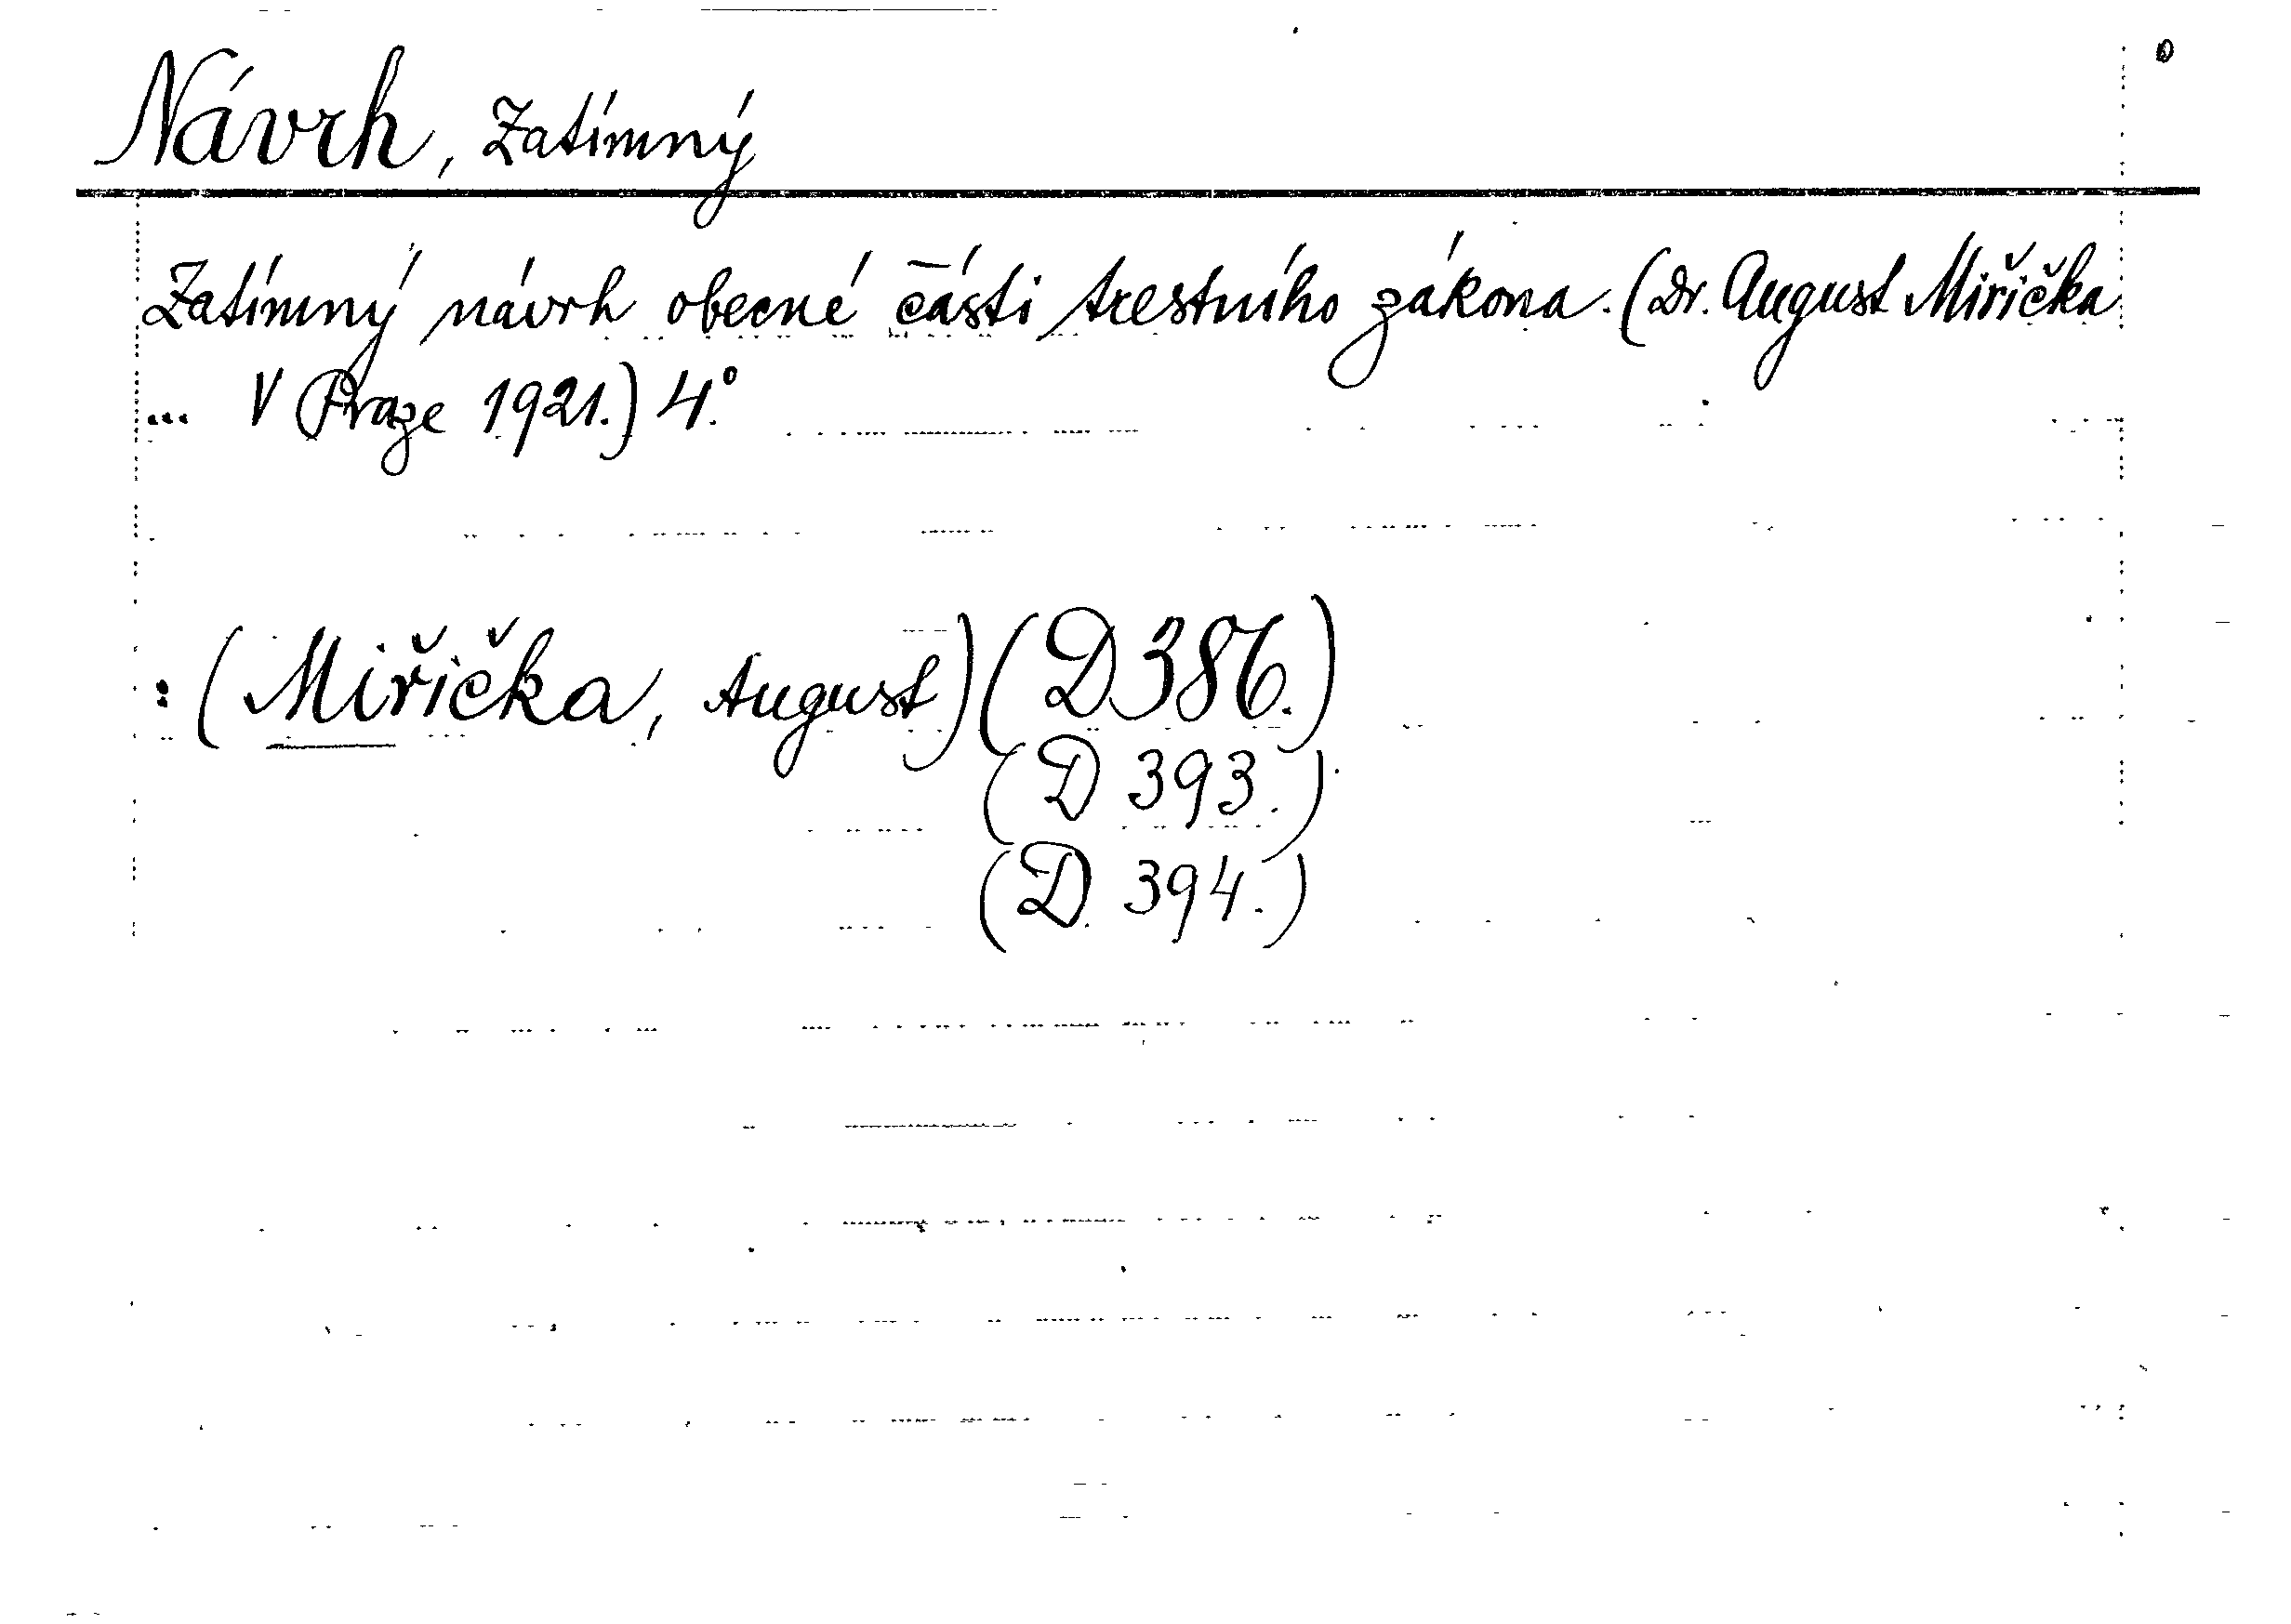 Návrh, Zatímný
Zatímný návrh obecné části trestního zákona. (Dr. August Miřička
... V Praze 1921.) 4.°
: (Miřička, August) (D 386.)
(D 393.)
(D. 394.)